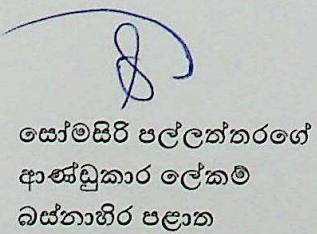 සෝමසිරි පල්ලත්තරගේ
ආණ්ඩුකාර ලේකම්
බස්නාහිර පළාත